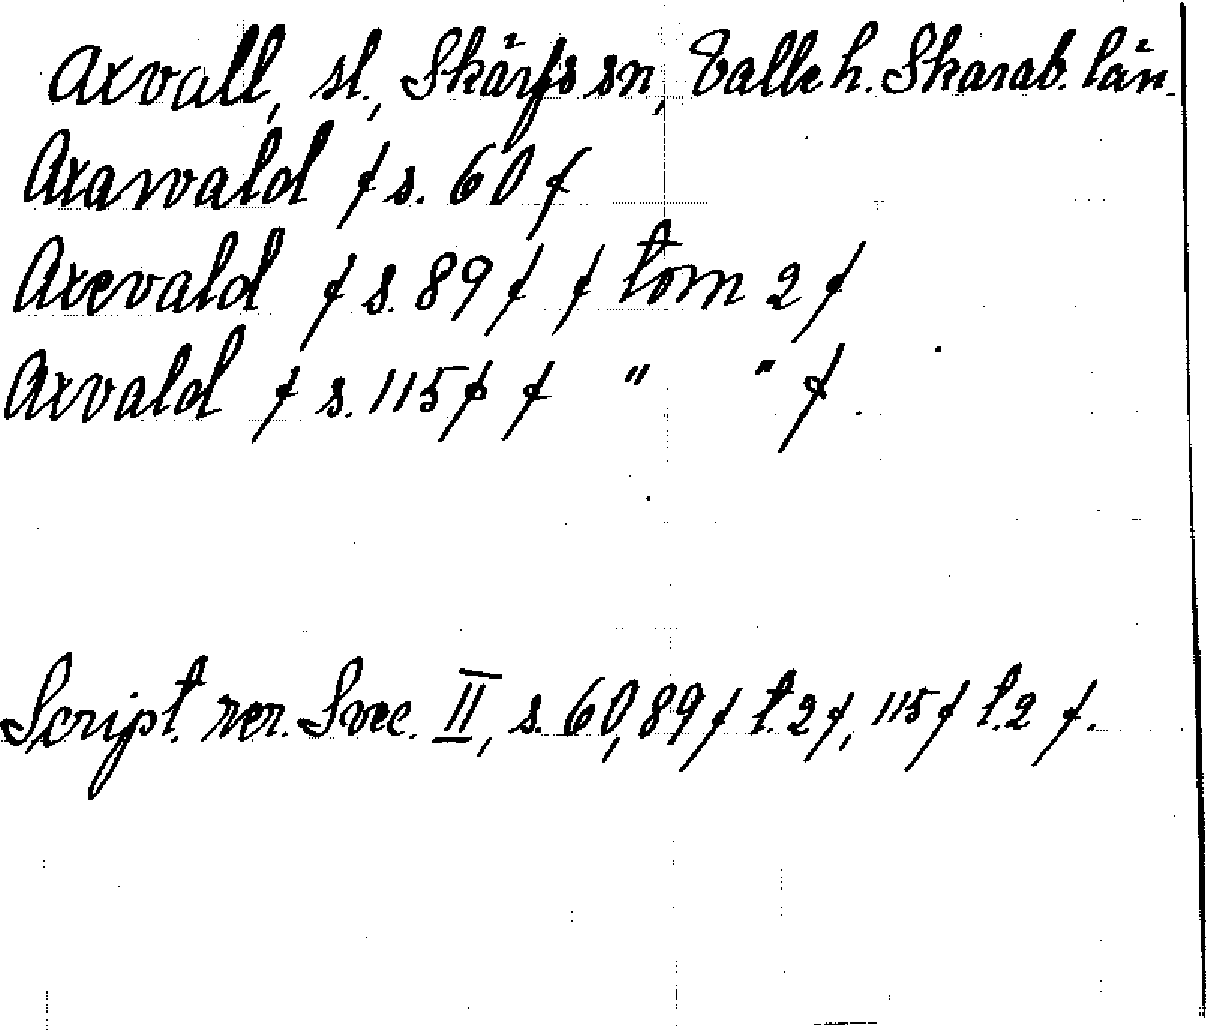 Axvall, sl., Skärfs sn, Valle h. Skarab. län.
Axawald / s. 60 /
Axevald / s. 89 / / tom 2 /
Axvald / s. 115 / / " " /
Script. rer. Svec. II, s. 60, 89 / t. 2 /, 115 / t. 2 /.